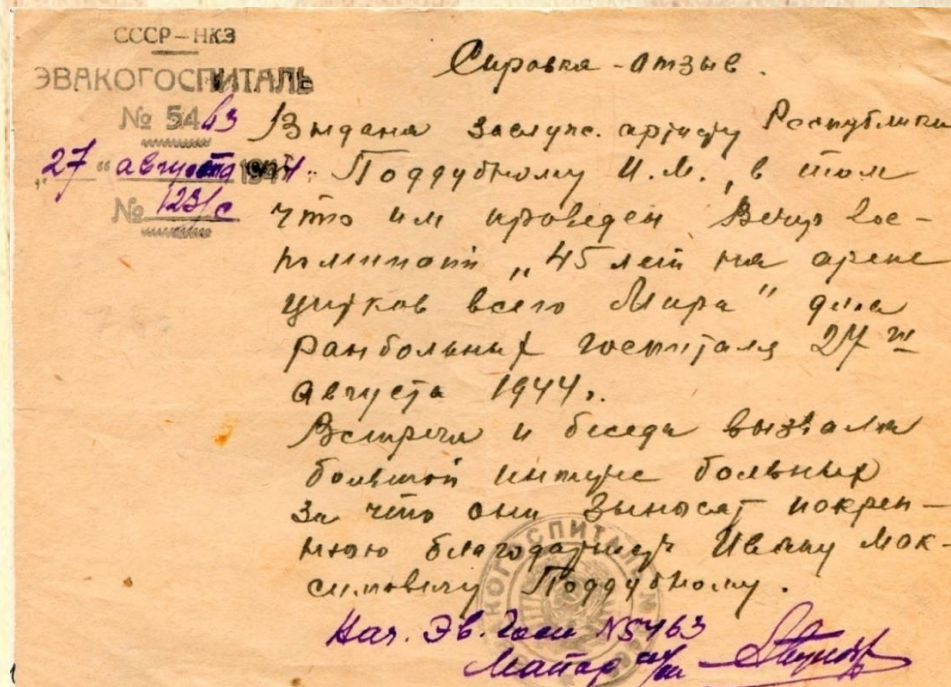 СССР-НКЗ
ЭВАКОГОСПИТАЛЬ
№ 5463
"27" августа 1944 г.
№ 123/с
Справка-отзыв.
Выдана заслуж. артисту Республики
Поддубному И.М., в том
что им проведен Вечер вос-
поминаний „45 лет на арене
цирков всего Мира" для
ранбольных госпиталя 27го
августа 1944г.
Встреча и беседа вызвала
большой интерес больных
за что они выносят искрен-
нюю благодарность Ивану Мак-
симовичу Поддубному.
Нач. Эв. Госп N5463
Майор м/с